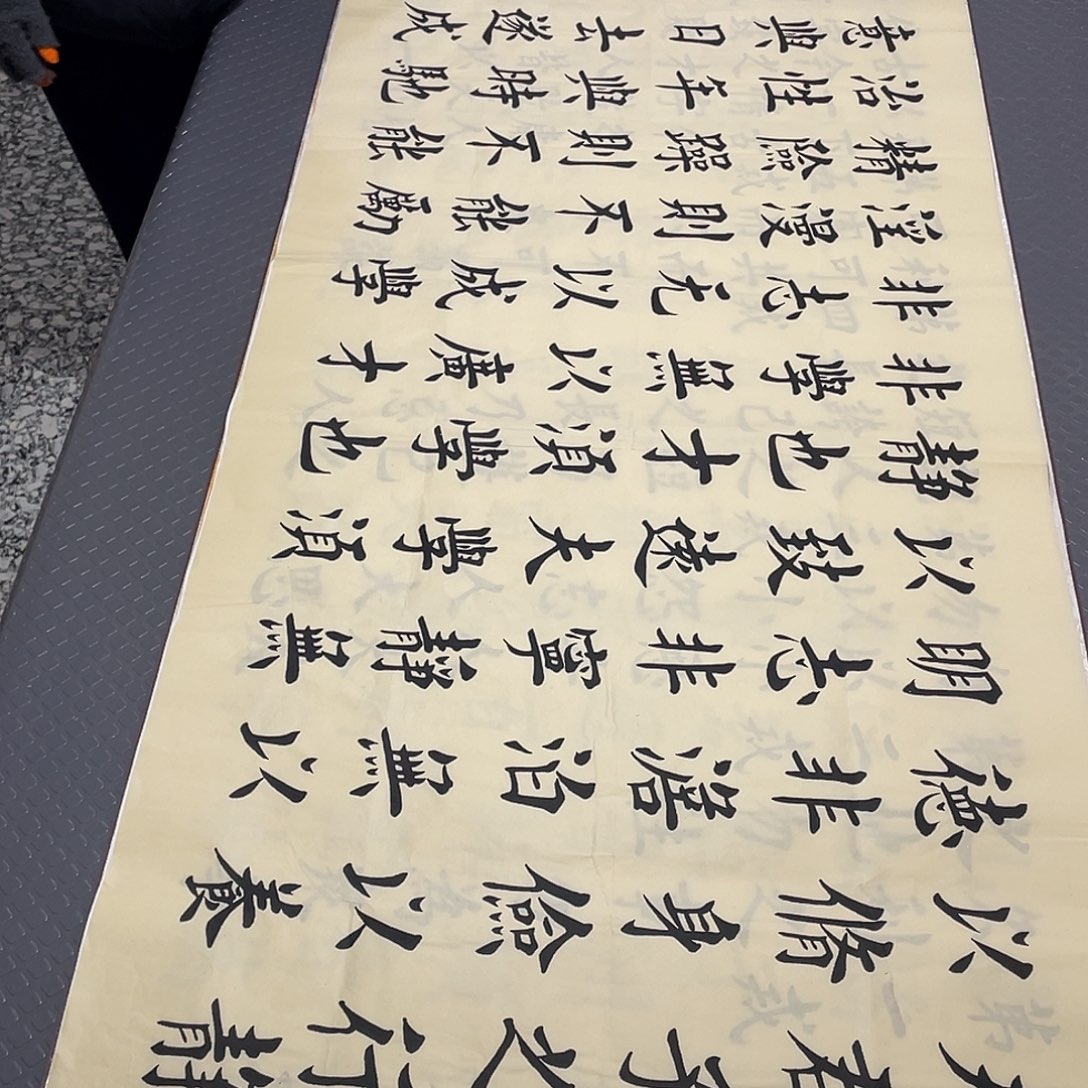 夫君子之行靜
以脩身儉以養
德非澹泊無以
明志非寧靜無
以致遠夫學須
靜也才須學也
非學無以廣才
非志无以成學
淫漫則不能勵
精險躁則不能
治性年與時馳
意與日去遂成